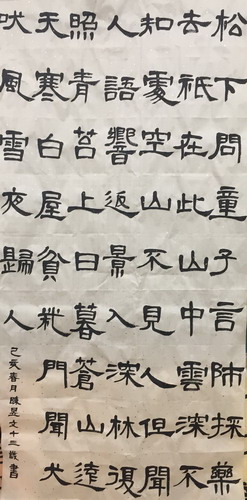 松下問童子言師採藥
去祇在此山中雲深不
知處空山不見人但聞
人語響返景入深林復
照青苔上日暮蒼山遠
天寒白屋貧柴門聞犬
吠風雪夜歸人
己亥春月陳昱文十二歲書